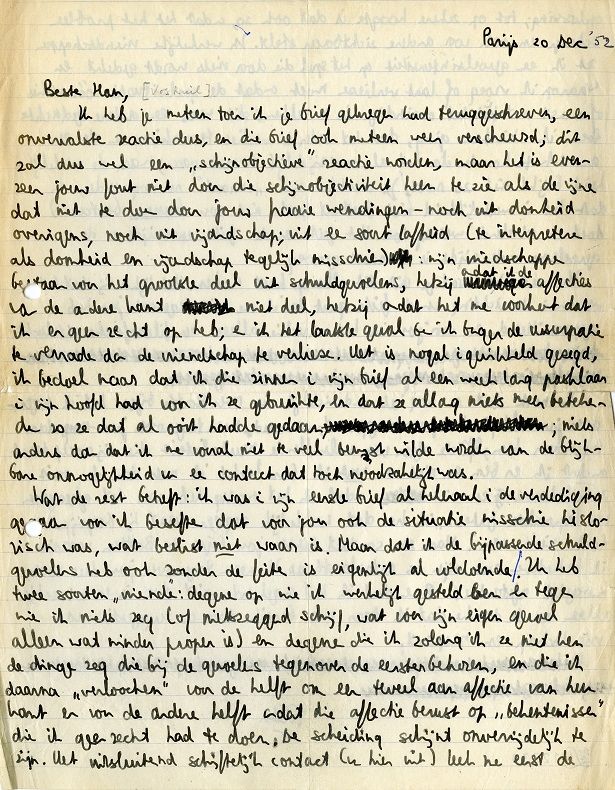 Parijs 20 Dec '52
Beste Han, [Voskuil]
Ik heb je meteen toen ik je brief gekregen had teruggeschreven, een
onvervalste reactie dus, en die brief ook meteen weer verscheurd; dit
zal dus wel een „schijnobjectieve" reactie worden, maar het is even-
zeer jouw fout niet door die schijnobjectiviteit heen te zien als de mijne
dat niet te doen door jouw fraaie wendingen – noch uit domheid
overigens, noch uit vijandschap, uit een soort lafheid (te interpreteren
als domheid en vijandschap tegelijk misschien): mijn vriendschappen
bestaan voor het grootste deel uit schuldgevoelens, hetzij omdat ik de affecties
van de andere kant niet deel, hetzij omdat het me voorkomt dat
ik er geen recht op heb; en in het laatste geval ben ik banger de usurpatie
te verraden dan de vriendschap te verliezen. Het is nogal ingewikkeld gezegd,
ik bedoel maar dat ik die zinnen in mijn brief al een week lang pasklaar
in mijn hoofd had voor ik ze gebruikte, en dat ze allang niets meer beteken-
den zo ze dat al ooit hadden gedaan; niets
anders dan dat ik me vooral niet te veel bewust wilde worden van de blijk-
bare onmogelijkheid van een contact dat toch noodzakelijk was.
Wat de rest betreft: ik was in mijn eerste brief al helemaal in de verdediging
gegaan voor ik besefte dat voor jou ook de situatie misschien histo-
risch was, wat beslist niet waar is. Maar dat ik de bijpassende schuld-
gevoelens heb ook zonder de feiten is eigenlijk al voldoende. Ik heb
twee soorten „vrienden": degenen op wie ik werkelijk gesteld ben en tegen
wie ik niets zeg (of nietszeggend schrijf, wat voor mijn eigen gevoel
alleen wat minder proper is) en degenen die ik zolang ik ze niet ken
de dingen zeg die bij de gevoelens tegenover de eersten behoren, en die ik
daarna „verloochen" voor de helft om een teveel aan affectie van hun
kant en voor de andere helft omdat die affectie berust op „bekentenissen"
die ik geen recht had te doen. De scheiding schijnt onvermijdelijk te
zijn. Het uitsluitend schriftelijk contact (van hier uit) leek me eerst de